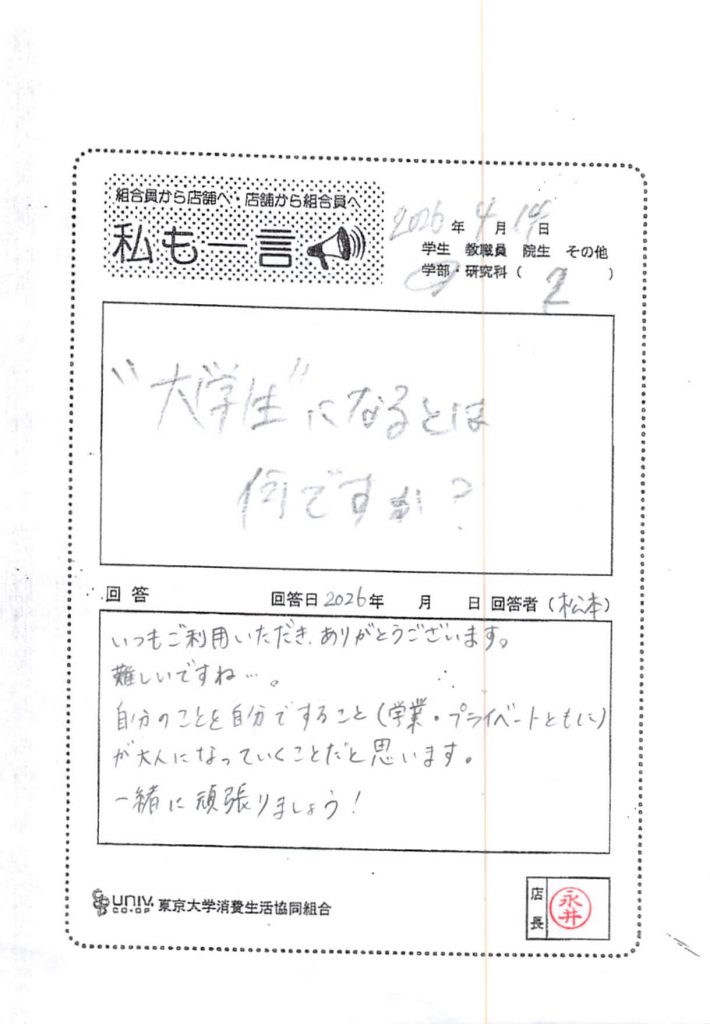 組合員から店舗へ・店舗から組合員へ
私も一言
2026年 4月 14日
学生 教職員 院生 その他
学部・研究科( 2 )
“大学生”になるとは
何ですか?
回答 回答日2026年 月 日 回答者(松本)
いつもご利用いただき、ありがとうございます。
難しいですね…。
自分のことを自分ですること(学業・プライベートともに)
が大人になっていくことだと思います。
一緒に頑張りましょう!
UNIV. CO-OP 東京大学消費生活協同組合
店長 永井